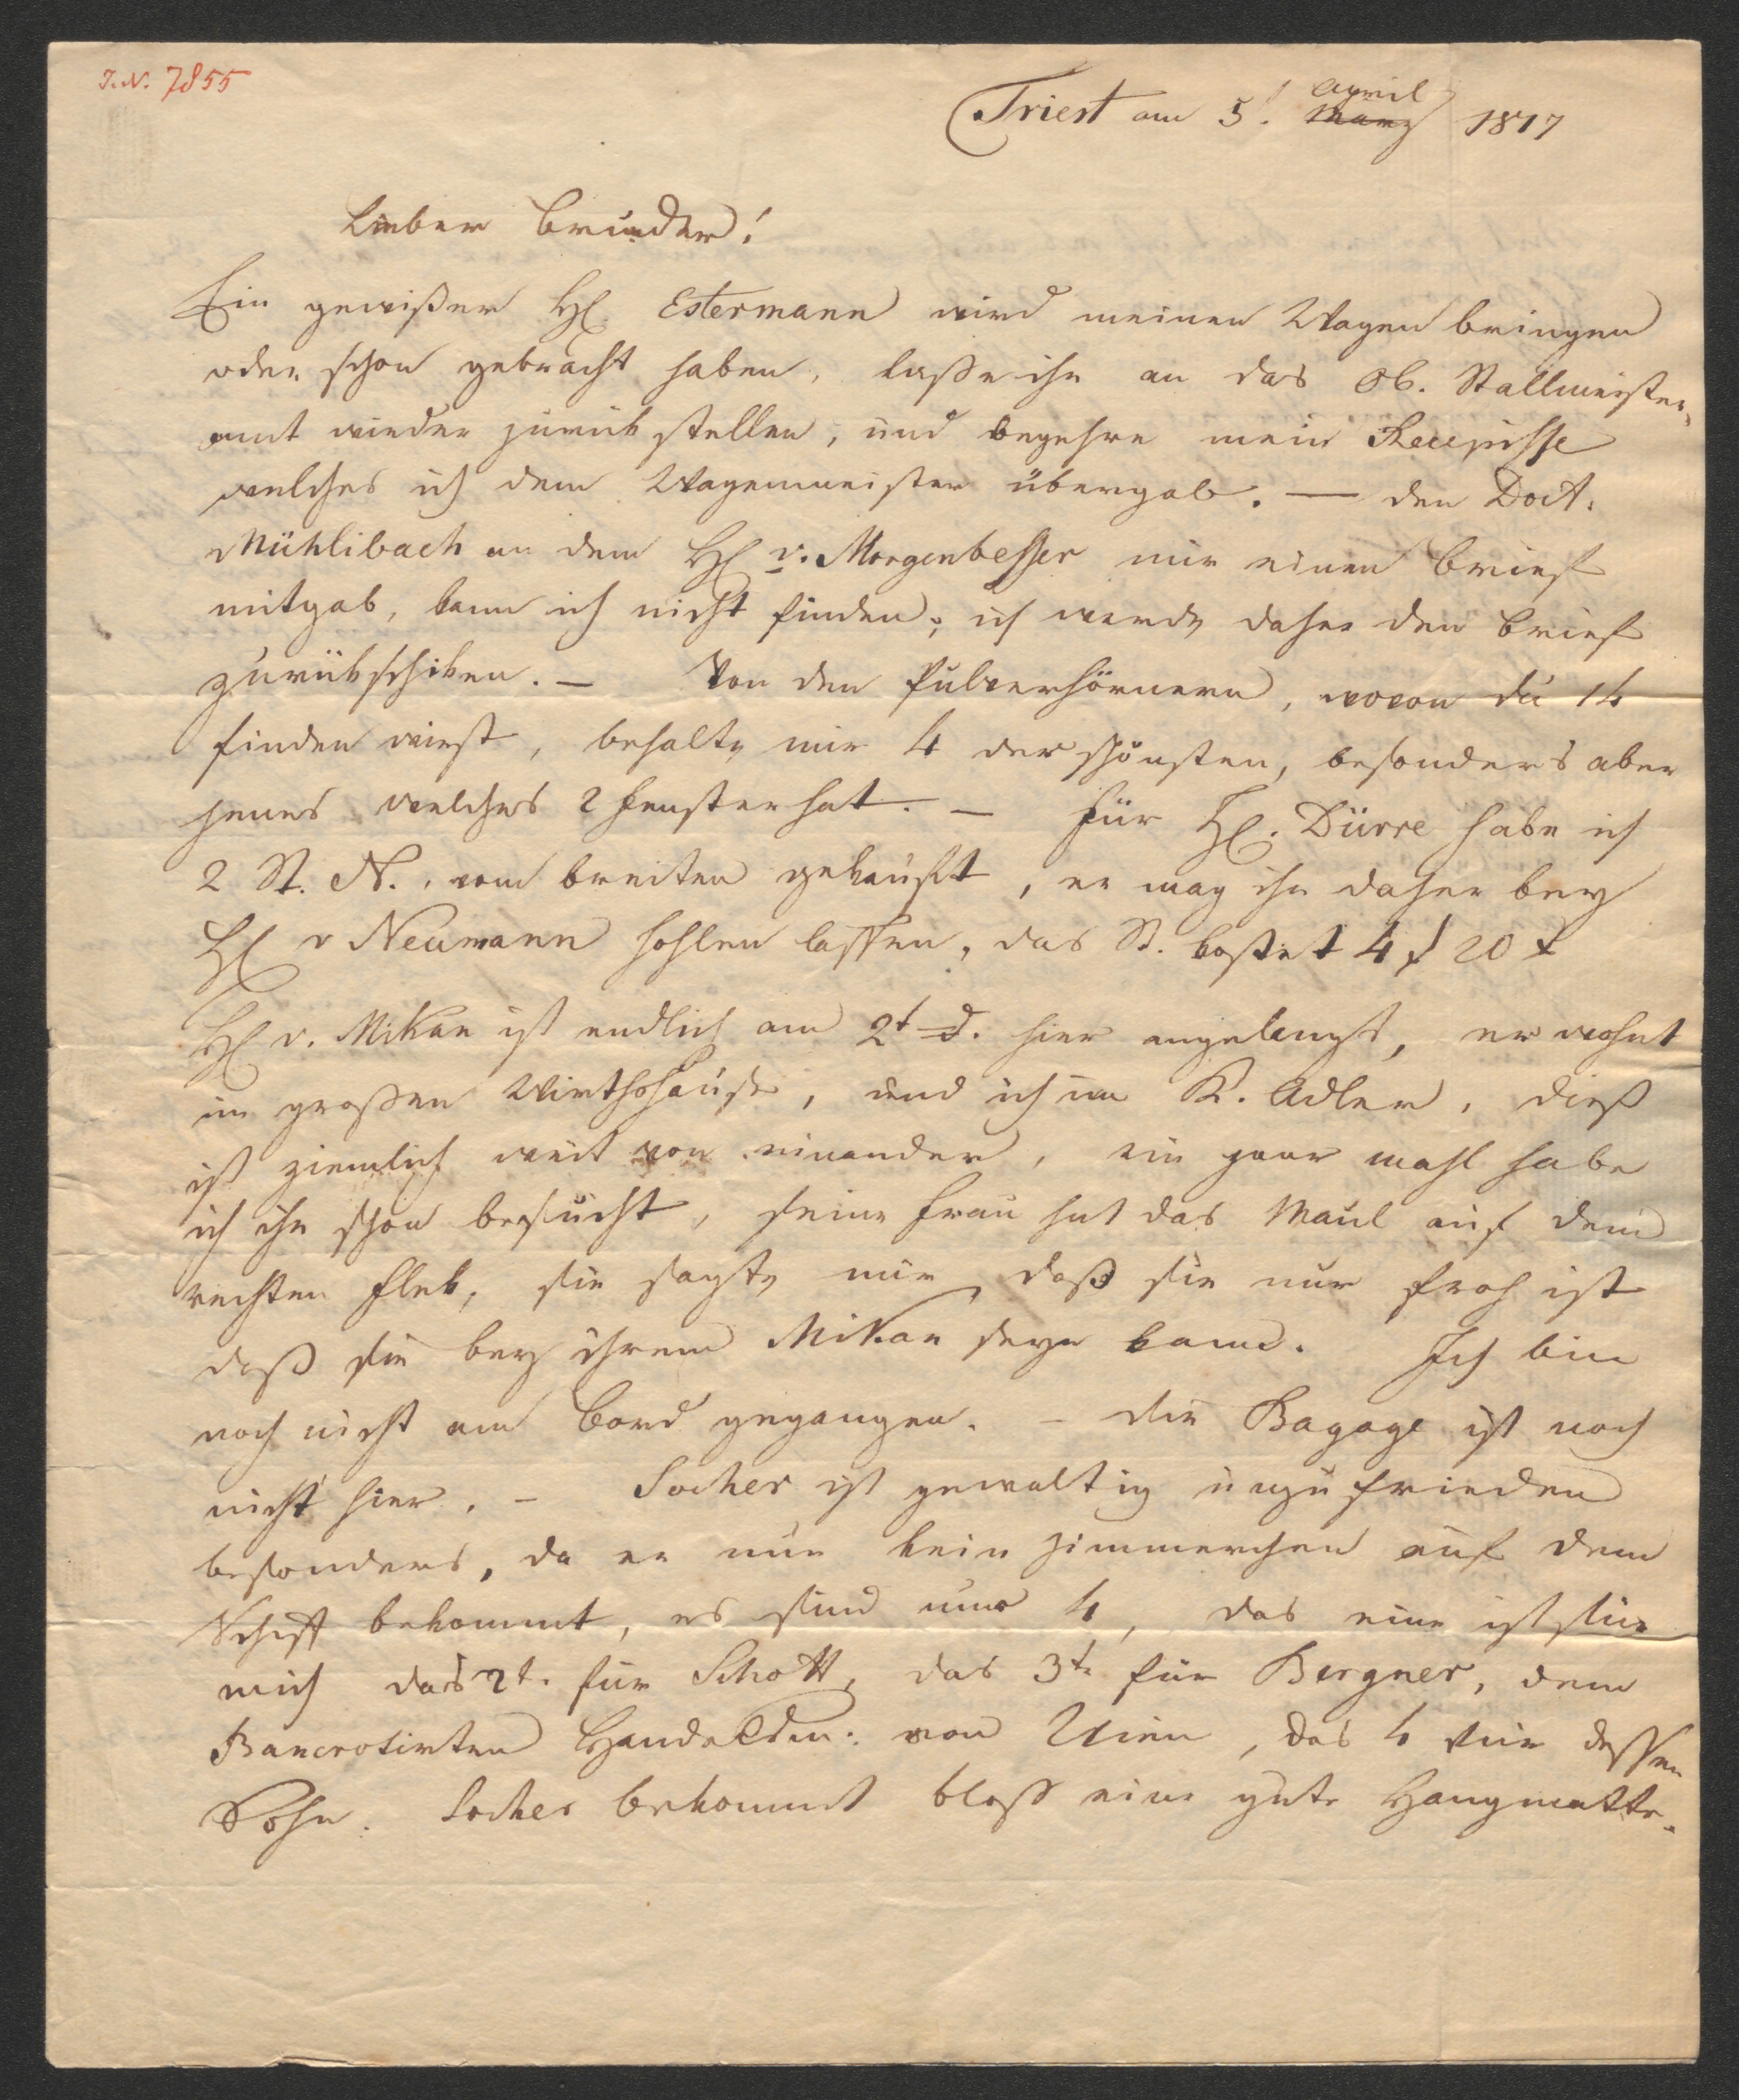 I.N. 7855
Triest am 5t. April März 1817
Lieber Bruder!
Ein gewißer H. Estermann wird meinen Wagen bringen
oder schon gebracht haben, laße ihn an das Ob. Stallmeister
amt wieder zurük stellen, und begehre mein Recepisse
welches ich dem Wagenmeister übergab. — den Doct.
Mühlibach an dem H v. Morgenbesser mir einen Brief
mitgab, kann ich nicht finden; ich werde daher den Brief
zurükschiken. — Von den Pulverhörnern, wovon du 14
finden wirst, behalte mir 4 der schönsten, besonders aber
jenes welches 2 Fenster hat. — Für H. Dürre habe ich
2 St. N. vom breiten gekauft, er mag ihn daher bey
H v Neumann hohlen lassen, das St. kostet 4 f 20 x
H v. Mikan ist endlich am 2t d. hier angelangt, er wohnt
im großen Wirthshause, und ich im K. Adler, dieß
ist ziemlich weit von einander, ein paar mahl habe
ich ihn schon besucht, seine Frau hat das Maul auf dem
rechten Flek, sie sagte mir, daß sie nur froh ist
daß sie bey ihrem Mikan seyn kann. Ich bin
noch nicht am Bord gegangen. - die Bagage ist noch
nicht hier. - Socher ist gewaltig unzufrieden
besonders, da er nun kein Zimmerchen auf dem
Schiff bekommt, es sind nur 4, das eine ist für
mich das 2t. für Schott, das 3te für Bergner, dem
Bancrotirten von Wien, das 4 für dessen
Sohn. Socher bekommt bloß eine gute Hangmatte.